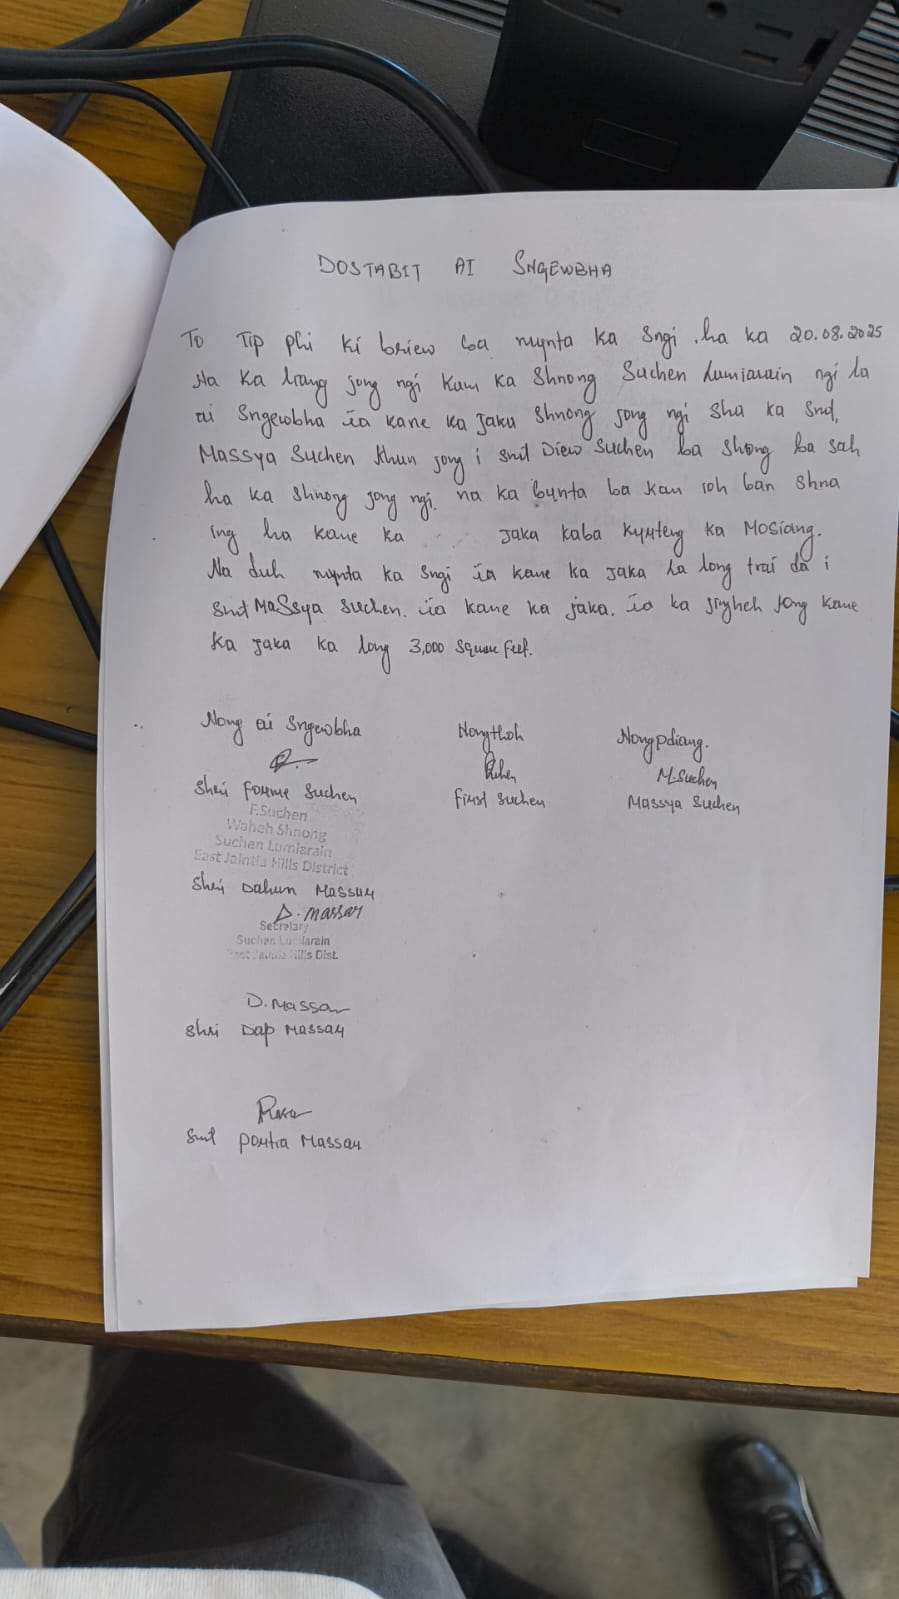 DOSTABIT AI SNGEWBHA
To Tip phi ki briew ba mynta ka Sngi ha ka 20.08.2025
Na ka liang jong ngi kum ka Shnong Suchen Lumiarain ngi la
ai Sngewbha ïa kane ka Jaka Shnong jong ngi sha ka Smt,
Massya Suchen Khun jong i Smt Diew Suchen ba shong ba sah
ha ka Shnong jong ngi. na ka bynta ba kan ioh ban shna
ing ha kane ka jaka kaba kyrteng ka Mosiang.
Na duh mynta ka Sngi ïa kane ka jaka La long trai da i
Smt Massya Suchen. ïa kane ka jaka. ïa ka jingheh jong kane
ka jaka ka long 3,000 Square Feet.
Nong ai Sngewbha Nongthoh Nongpdiang.
M.Suchen
Shri Forme Suchen First Suchen Massya Suchen
F.Suchen
Waheh Shnong
Suchen Lumiarain
East Jaintia Hills District
Shri Dahun Massar
D. Massar
Secretary
Suchen Lumiarain
East Jaintia Hills Dist.
D. Massar
Shri Dap Massar
Smt Portia Massar